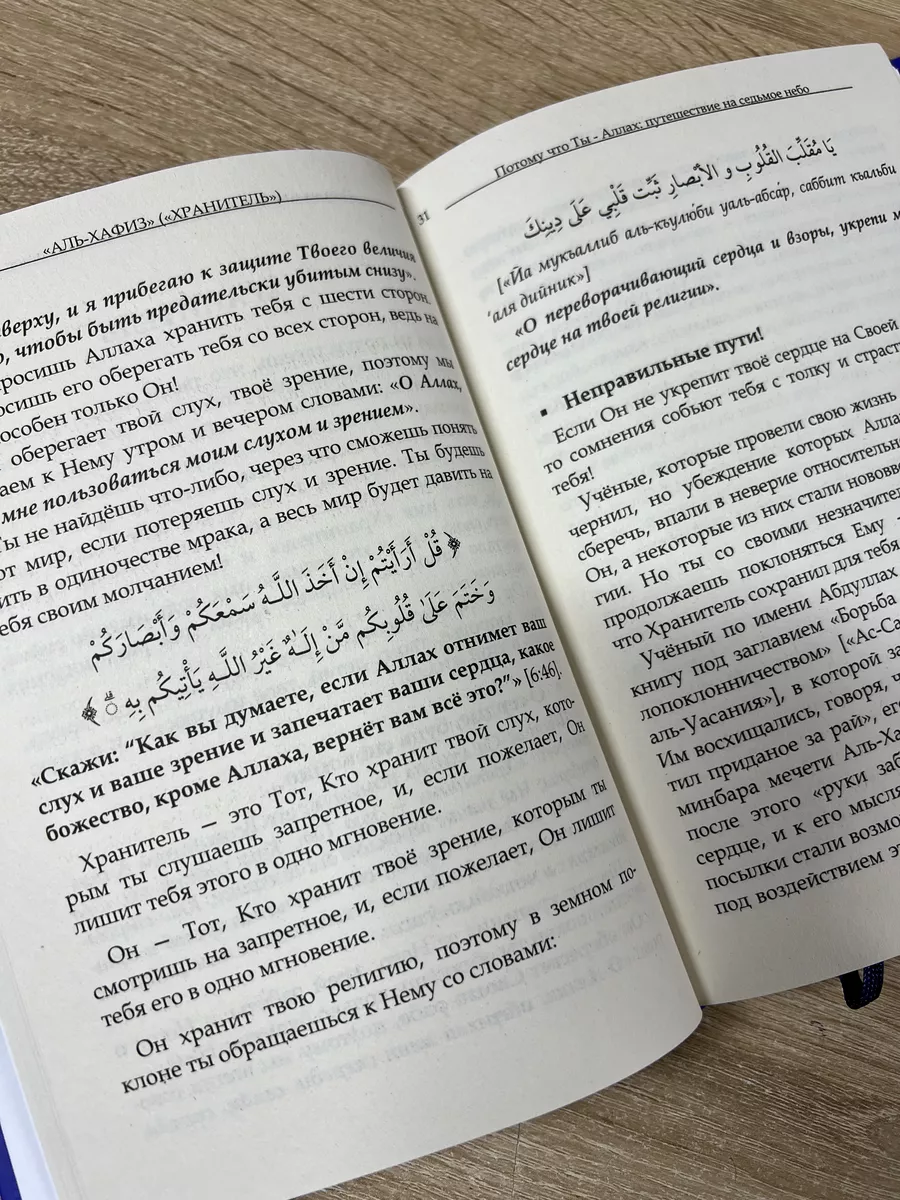 «АЛЬ-ХАФИЗ» («ХРАНИТЕЛЬ»)
31
и я прибегаю к защите Твоего величия
чтобы быть предательски убитым снизу».
Аллаха хранить тебя с шести сторон.
его оберегать тебя со всех сторон, ведь на
только Он!
оберегает твой слух, твоё зрение, поэтому мы
к Нему утром и вечером словами: «О Аллах,
мне пользоваться моим слухом и зрением».
не найдёшь что-либо, через что сможешь понять
мир, если потеряешь слух и зрение. Ты будешь
в одиночестве мрака, а весь мир будет давить на
своим молчанием!
﴿ قُلْ أَرَأَيْتُمْ إِنْ أَخَذَ اللَّهُ سَمْعَكُمْ وَأَبْصَارَكُمْ
وَخَتَمَ عَلَىٰ قُلُوبِكُم مَّنْ إِلَٰهٌ غَيْرُ اللَّهِ يَأْتِيكُم بِهِ ۗ ﴾
«Скажи: “Как вы думаете, если Аллах отнимет ваш
слух и ваше зрение и запечатает ваши сердца, какое
божество, кроме Аллаха, вернёт вам всё это?”» [6:46].
Хранитель — это Тот, Кто хранит твой слух, кото-
рым ты слушаешь запретное, и, если пожелает, Он
лишит тебя этого в одно мгновение.
Он — Тот, Кто хранит твоё зрение, которым ты
смотришь на запретное, и, если пожелает, Он лишит
тебя его в одно мгновение.
Он хранит твою религию, поэтому в земном по-
клоне ты обращаешься к Нему со словами:
Потому что Ты - Аллах: путешествие на седьмое небо
يَا مُقَلِّبَ القُلُوبِ و الأَبْصَارِ ثَبِّت قَلْبِي عَلَى دِينِكَ
[«Йа мукъаллиб аль-къулю́би уаль-абса́р, саббит къальби
‘аля дийник»]
«О переворачивающий сердца и взоры, укрепи
сердце на твоей религии».
▪ Неправильные пути!
Если Он не укрепит твоё сердце на Своей
то сомнения собьют тебя с толку и
тебя!
Учёные, которые провели свою жизнь
чернил, но убеждение которых
сберечь, впали в неверие
Он, а некоторые из них стали
гии. Но ты со своими
продолжаешь поклоняться Ему
что Хранитель сохранил для тебя
Учёный по имени Абдуллах
книгу под заглавием «Борьба
лопоклонничеством» [«Ас-
аль-Уасания»], в которой
Им восхищались, говоря,
тил приданое за рай»,
минбара мечети
после этого «руки
сердце, и к его
посылки стали
под воздействием